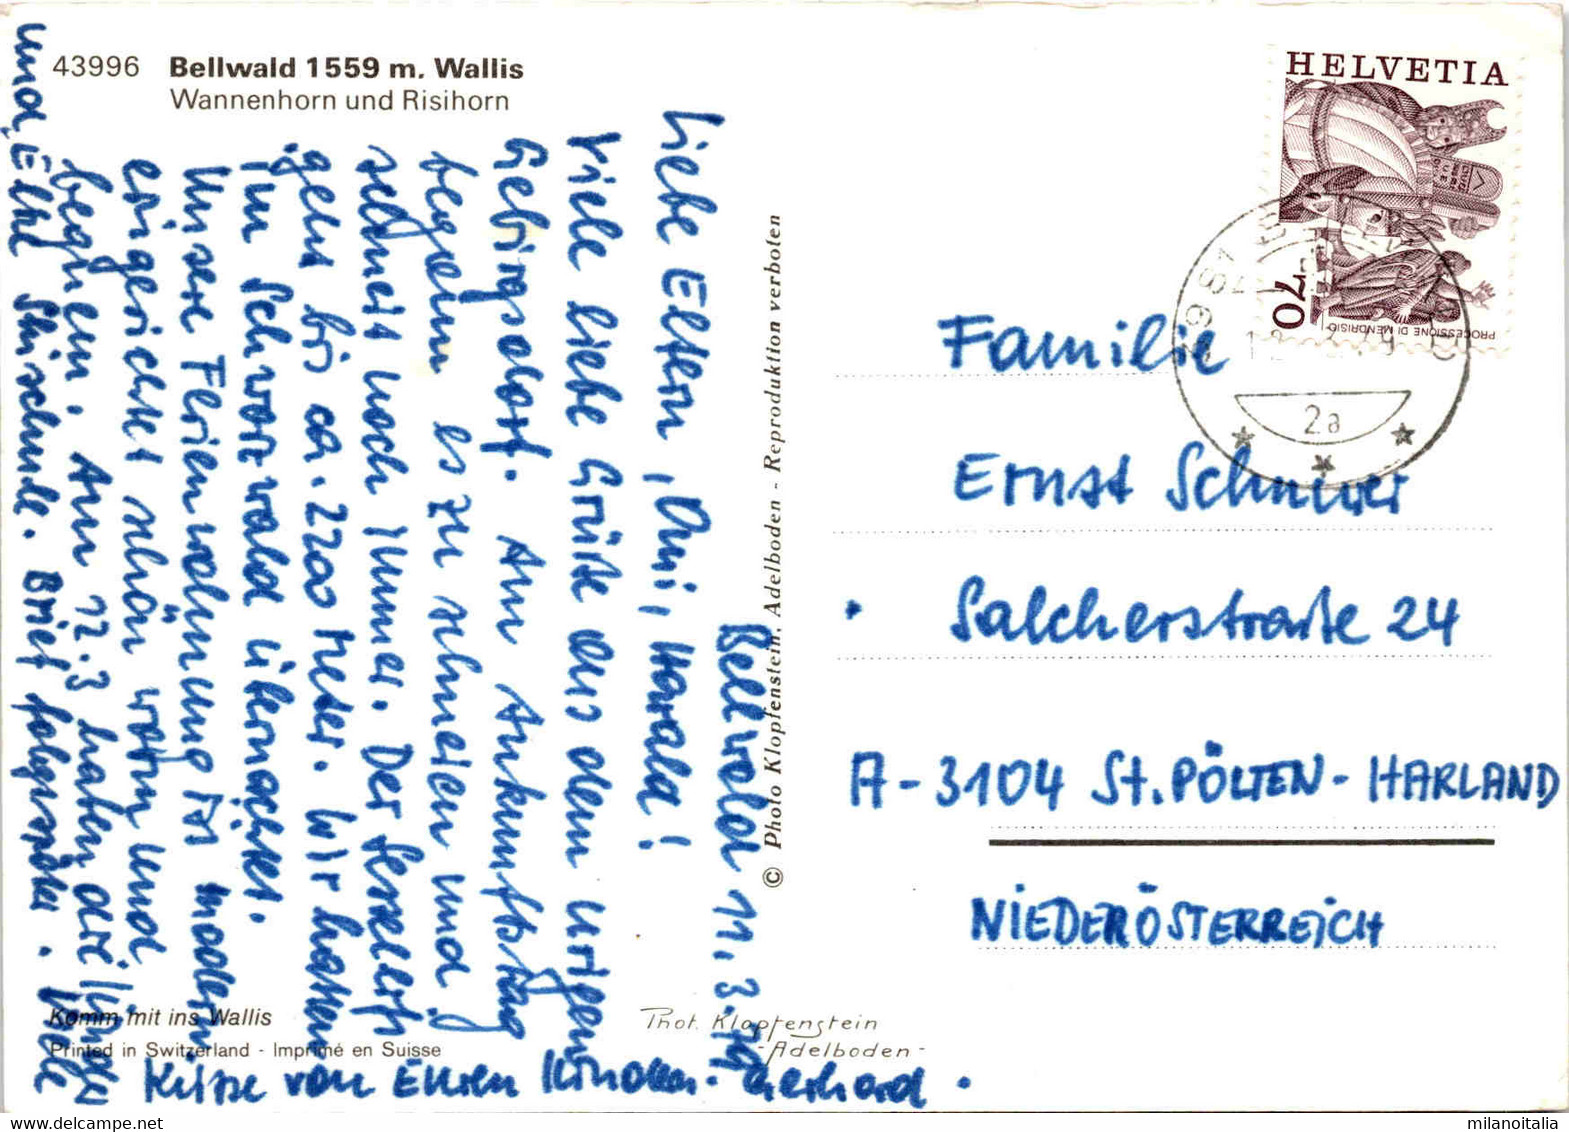 43996 Bellwald 1559 m. Wallis
Wannenhorn und Risihorn
Bellwald 11. 3. 79
Liebe Eltern, Omi, Harald!
Viele liebe Grüße aus dem urigen
Gebirgsdorf. Am Ankunftstag
begann es zu schneien und
schneit noch immer. Der Sessellift
geht bis ca. 2200 Meter. Wir hatten
im Schwarzwald übernachtet.
Unsere Ferienwohnung ist modern
eingerichtet schön warm und
bequem. Am 12.3 haben die Jungen
und Elke Skischule. Brief folgt später. Viele
Küsse von Euren Kindern. Gerhard.
© Photo Klopfenstein, Adelboden - Reproduktion verboten
Komm mit ins Wallis
Printed in Switzerland - Imprimé en Suisse
Phot. Klopfenstein
- Adelboden -
HELVETIA
70
PROCESSIONE DI MENDRISIO
2a
Familie
Ernst Schneider
Salcherstraße 24
A-3104 St. PÖLTEN-HARLAND
NIEDERÖSTERREICH
milanoitalia